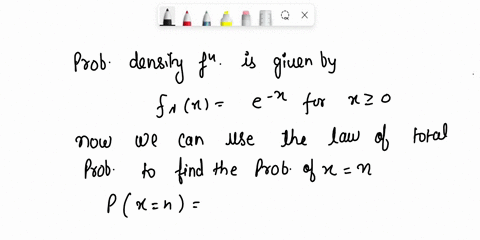 Prob. density fⁿ. is given by
f_Λ(x) = e^{-x} for x ≥ 0
now we can use the law of total
Prob. to find the Prob. of x = n
P(x=n) =